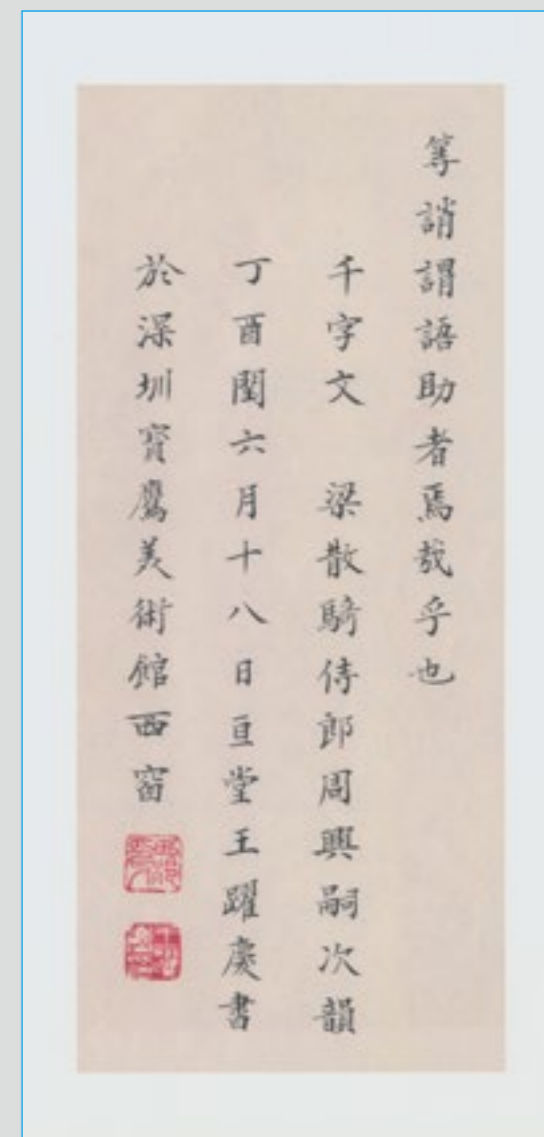 等誚謂語助者焉哉乎也
千字文 梁散騎侍郎周興嗣次韻
丁酉閏六月十八日亘堂王躍慶書
於深圳寶鷹美術館西窗